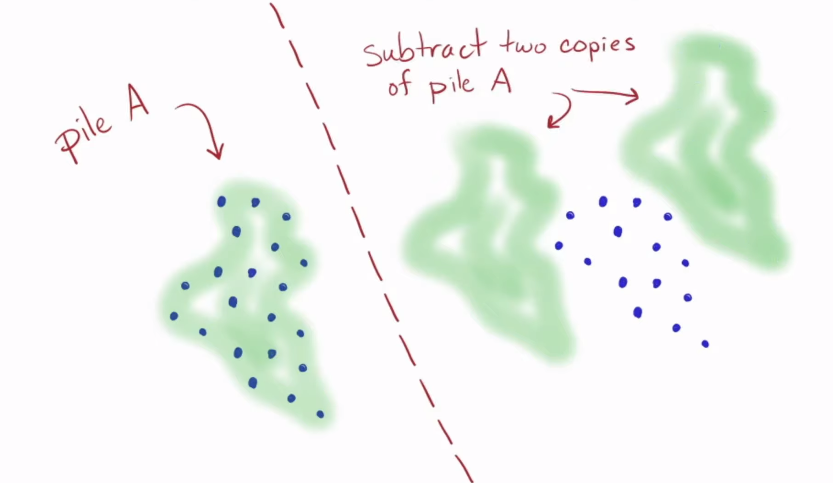 pile A
Subtract two copies
of pile A